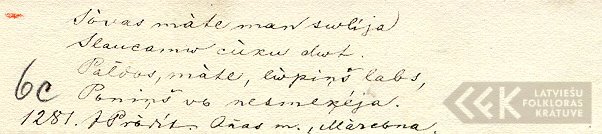 Tovas māte man solija
Slaucamu cūku dot.
Paldos, māte, lopiņš labs,
Poniņš vo nesmeķēja.
6c
1281. A Prōdit. Oñas m., Mārcena.
LATVIEŠU
FOLKLORAS
KRĀTUVE